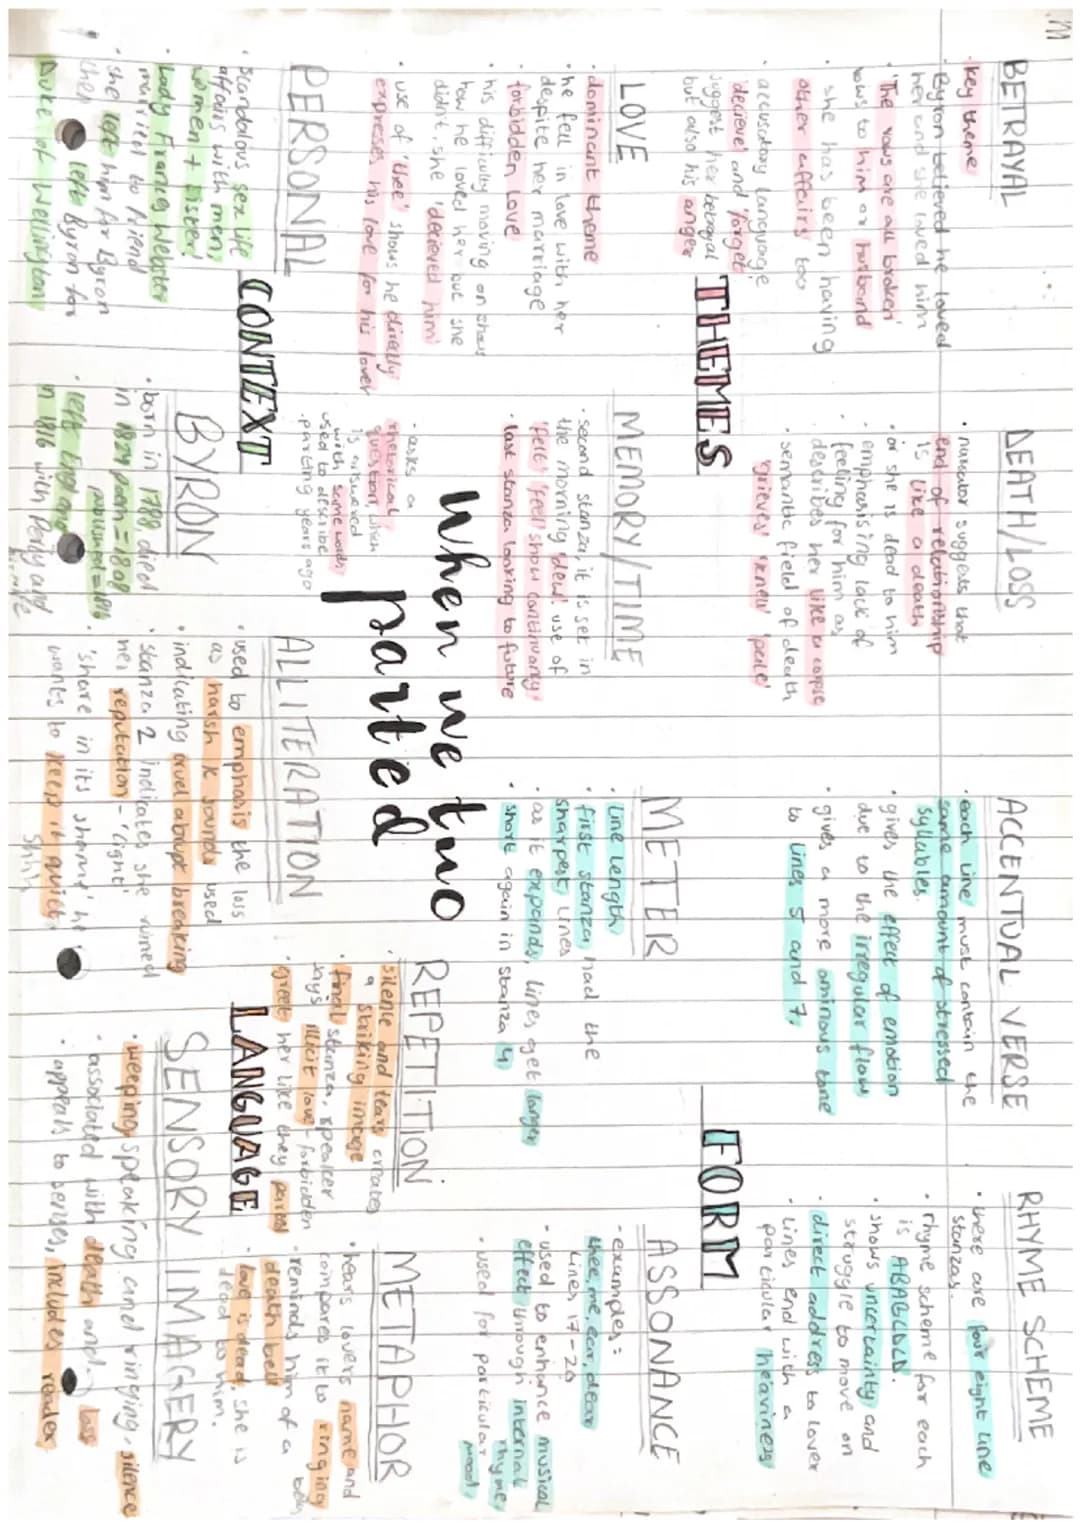 BETRAYAL
· key theme
· Byron believed he loved
her and she loved him
· 'The vows are all broken'
vows to him or husband
· she has been having
other affairs too
· accusatory language
'deceive' and 'forget'
suggest her betrayal
but also his anger
DEATH/LOSS
· narrator suggests that
end of relationship
is like a death
· or she is dead to him
· emphasising lack of
feeling for him as
describes her like a corpse
· semantic field of death
'grieves' 'knew' 'pale'
THEMES
LOVE
· dominant theme
· he fell in love with her
despite her marriage
· forbidden love
· his difficulty moving on shows
how he loved her but she
didn't, she 'deceived him'
· use of 'thee' shows he directly
expresses his love for his lover
MEMORY/TIME
· second stanza, it is set in
the morning 'dew'. use of
'felt' 'feel' show continuany
· last stanza looking to future
· asks a
rhetorical
question, which
is answered
with same words
used to describe
parting years ago
When we two
parted
ACCENTUAL VERSE
· each line must contain the
same amount of stressed
syllables.
· gives the effect of emotion
due to the irregular flow
· gives a more ominous tone
to lines 5 and 7,
RHYME SCHEME
· there are four eight line
stanzas.
· rhyme scheme for each
is ABABCDCD.
· shows uncertainty and
struggle to move on
· direct address to lover
· lines end with a
particular heaviness
FORM
METER
· line length
· first stanza had the
sharpest lines
· as it expands, lines get longer
· short again in stanza 4
ASSONANCE
· examples =
thee, me, ear, dear
Lines 17-20
· used to enhance musical
effect through internal
rhyme
· used for particular
mood
PERSONAL
· scandalous sex life
affairs with men,
women + sister!
· Lady Frances Webster
married to friend
· she left him for Byron
then left Byron for
Duke of Wellington
CONTEXT
BYRON
· born in 1788 died
in 1824 poem = 1808
published = 1816
· left England
in 1816 with Percy and
ALLITERATION
· used to emphasis the loss
as harsh k sounds used
· indicating cruel abrupt breaking
· stanza 2 indicates she ruined
her reputation - 'light'
· 'share in its shame' he
wants to keep it quiet,
Shhh
REPETITION
· silence and tears creates
a striking image
· final stanza, speaker
says illicit love - forbidden
· greet her like they parted
LANGUAGE
METAPHOR
· hears lovers name and
compares it to ringing
bells
· reminds him of a
death bell
· love is dead, she is
dead to him.
SENSORY IMAGERY
· weeping, speaking and ringing, silence
· associated with death and loss
· appeals to senses, includes reader